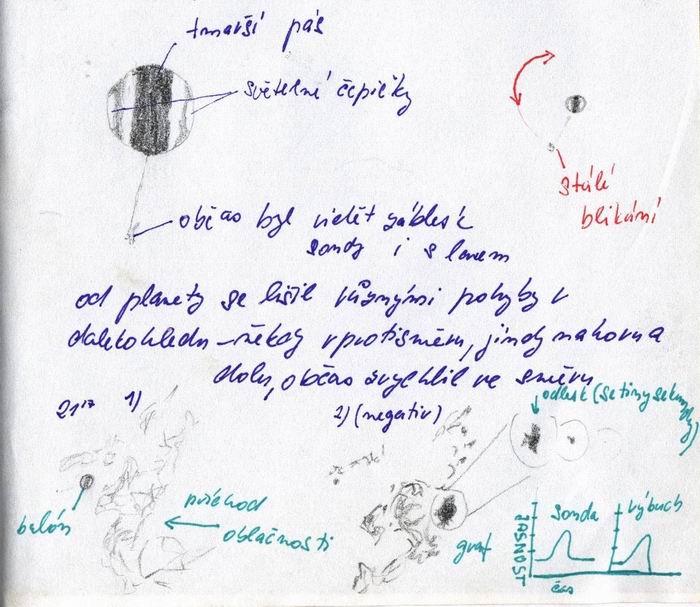 tmavší pás
světelné čepičky
stálé
blikání
občas byl vidět záblesk
sondy i s lanem
od planety se lišil různými pohyby v
dalekohledu – někdy v protisměru, jindy nahoru a
dolu, občas zrychlil ve směru
21¹⁷ 1)
2) (negativ)
odlesk (setiny sekundy)
balón
průchod
oblačnosti
graf
JASNOST
sonda
výbuch
čas